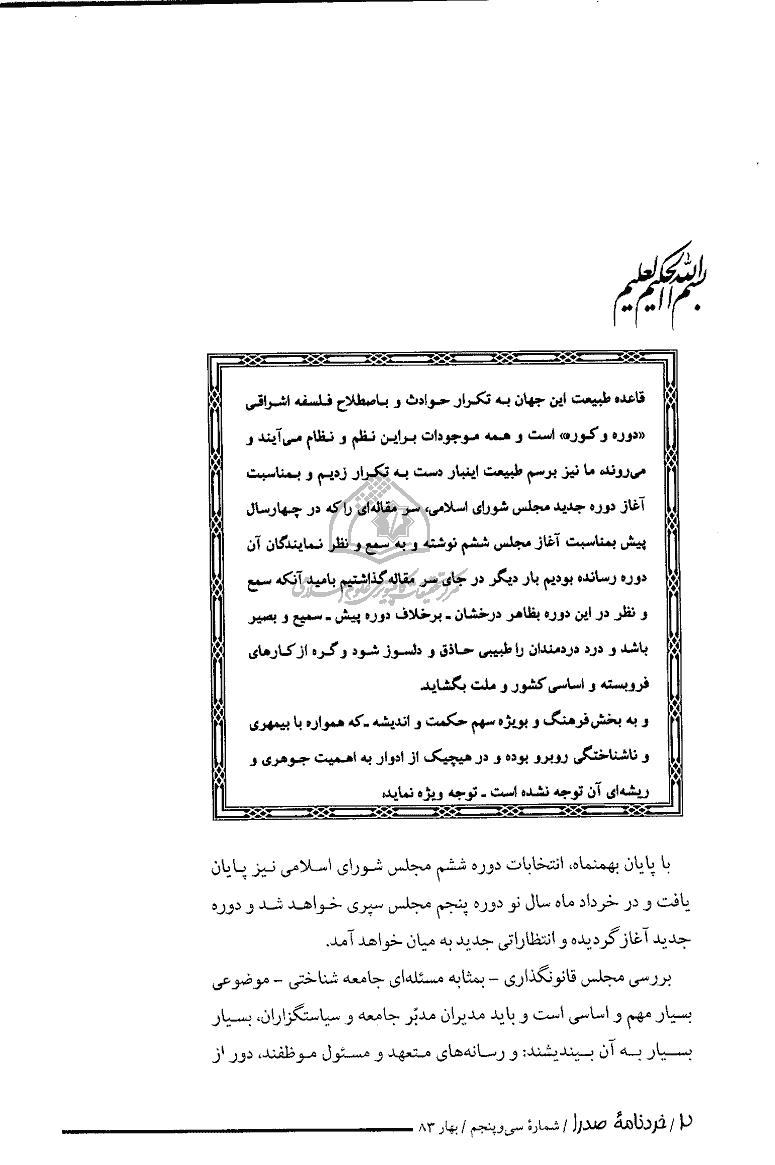 بسم الله الحکیم العلیم
قاعده طبیعت این جهان به تکرار حوادث و باصطلاح فلسفه اشراقی
«دوره و کوره» است و همه موجودات براین نظم و نظام می‌آیند و
می‌روند، ما نیز برسم طبیعت اینبار دست به تکرار زدیم و بمناسبت
آغاز دوره جدید مجلس شورای اسلامی، سر مقاله‌ای را که در چهارسال
پیش بمناسبت آغاز مجلس ششم نوشته و به سمع و نظر نمایندگان آن
دوره رسانده بودیم بار دیگر در جای سر مقاله گذاشتیم بامید آنکه سمع
و نظر در این دوره بظاهر درخشان ـ برخلاف دوره پیش ـ سمیع و بصیر
باشد و درد دردمندان را طبیبی حاذق و دلسوز شود و گره از کارهای
فروبسته و اساسی کشور و ملت بگشاید.
و به بخش فرهنگ و بویژه سهم حکمت و اندیشه ـ که همواره با بیمهری
و ناشناختگی روبرو بوده و در هیچیک از ادوار به اهمیت جوهری و
ریشه‌ای آن توجه نشده است ـ توجه ویژه نماید.
مرکز تحقیقات کامپیوتری علوم اسلامی
با پایان بهمنماه، انتخابات دوره ششم مجلس شورای اسلامی نیز پایان
یافت و در خرداد ماه سال نو دوره پنجم مجلس سپری خواهد شد و دوره
جدید آغاز گردیده و انتظاراتی جدید به میان خواهد آمد.
بررسی مجلس قانونگذاری – بمثابه مسئله‌ای جامعه شناختی – موضوعی
بسیار مهم و اساسی است و باید مدیران مدبّر جامعه و سیاستگزاران، بسیار
بسیار به آن بیندیشند: و رسانه‌های متعهد و مسئول موظفند، دور از
۲ / خردنامهٔ صدرا / شمارهٔ سی‌وپنجم / بهار ۸۳